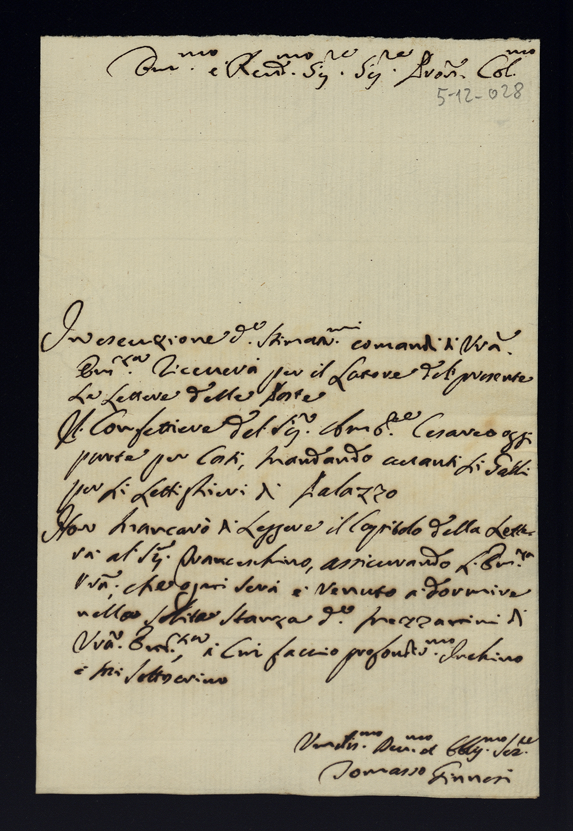 Em.mo e Rev.mo Sig.re Sig.re Pron. Col.mo
5-12-028
In esecuzione de stimat.mi comandi di Vra.
Em.za riceverà per il Latore del presente
Le Lettere delle Poste
Il Confettiere del Sig. Amb.re Cesareo oggi
parte per costì, mandando avanti li
per li di Palazzo
Non mancarò di Leggere il Capitolo della Lette-
ra al Sig. Franceschino, assicurando l'Em.za
Vra., che ogni sera è venuto a dormire
nella solita stanza de mezzanini di
Vra. Em.za, a cui faccio profondis.mo Inchino
e mi sottoscrivo
Umilis.mo Dev.mo ed Obblig.mo Ser.re
Tommaso Ginnesi